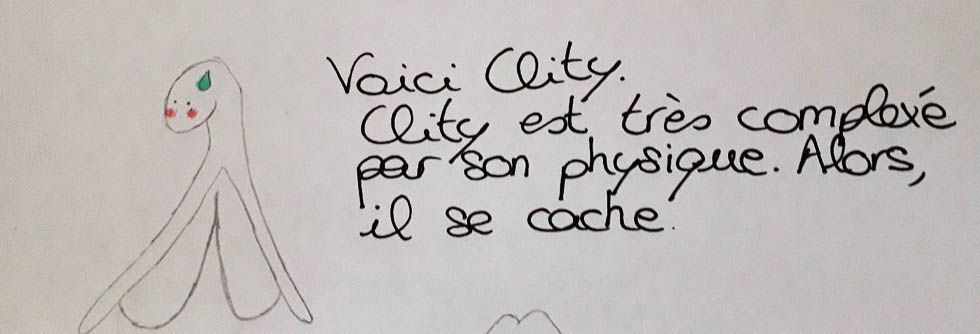 Voici Clity.
Clity est très complexé
par son physique. Alors,
il se cache.